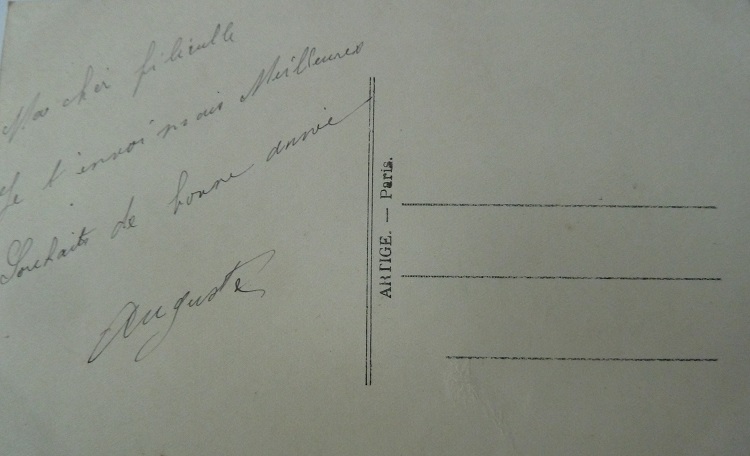 Ma cher filieulle
Je t'envoi mais Meilleures
Souhaits de bonne année
Auguste
ARTIGE. — Paris.